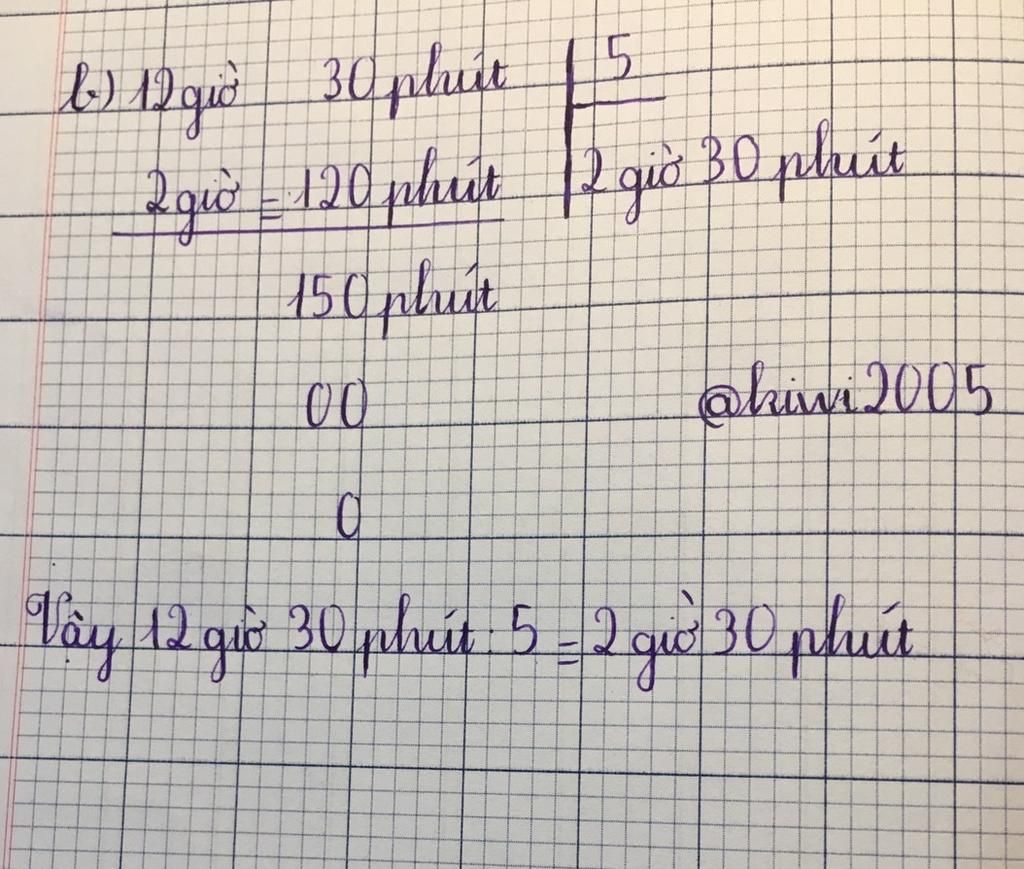 b) 12 giờ 30 phút 5
2 giờ = 120 phút 2 giờ 30 phút
150 phút
00 @kiwi2005
0
Vậy 12 giờ 30 phút : 5 = 2 giờ 30 phút